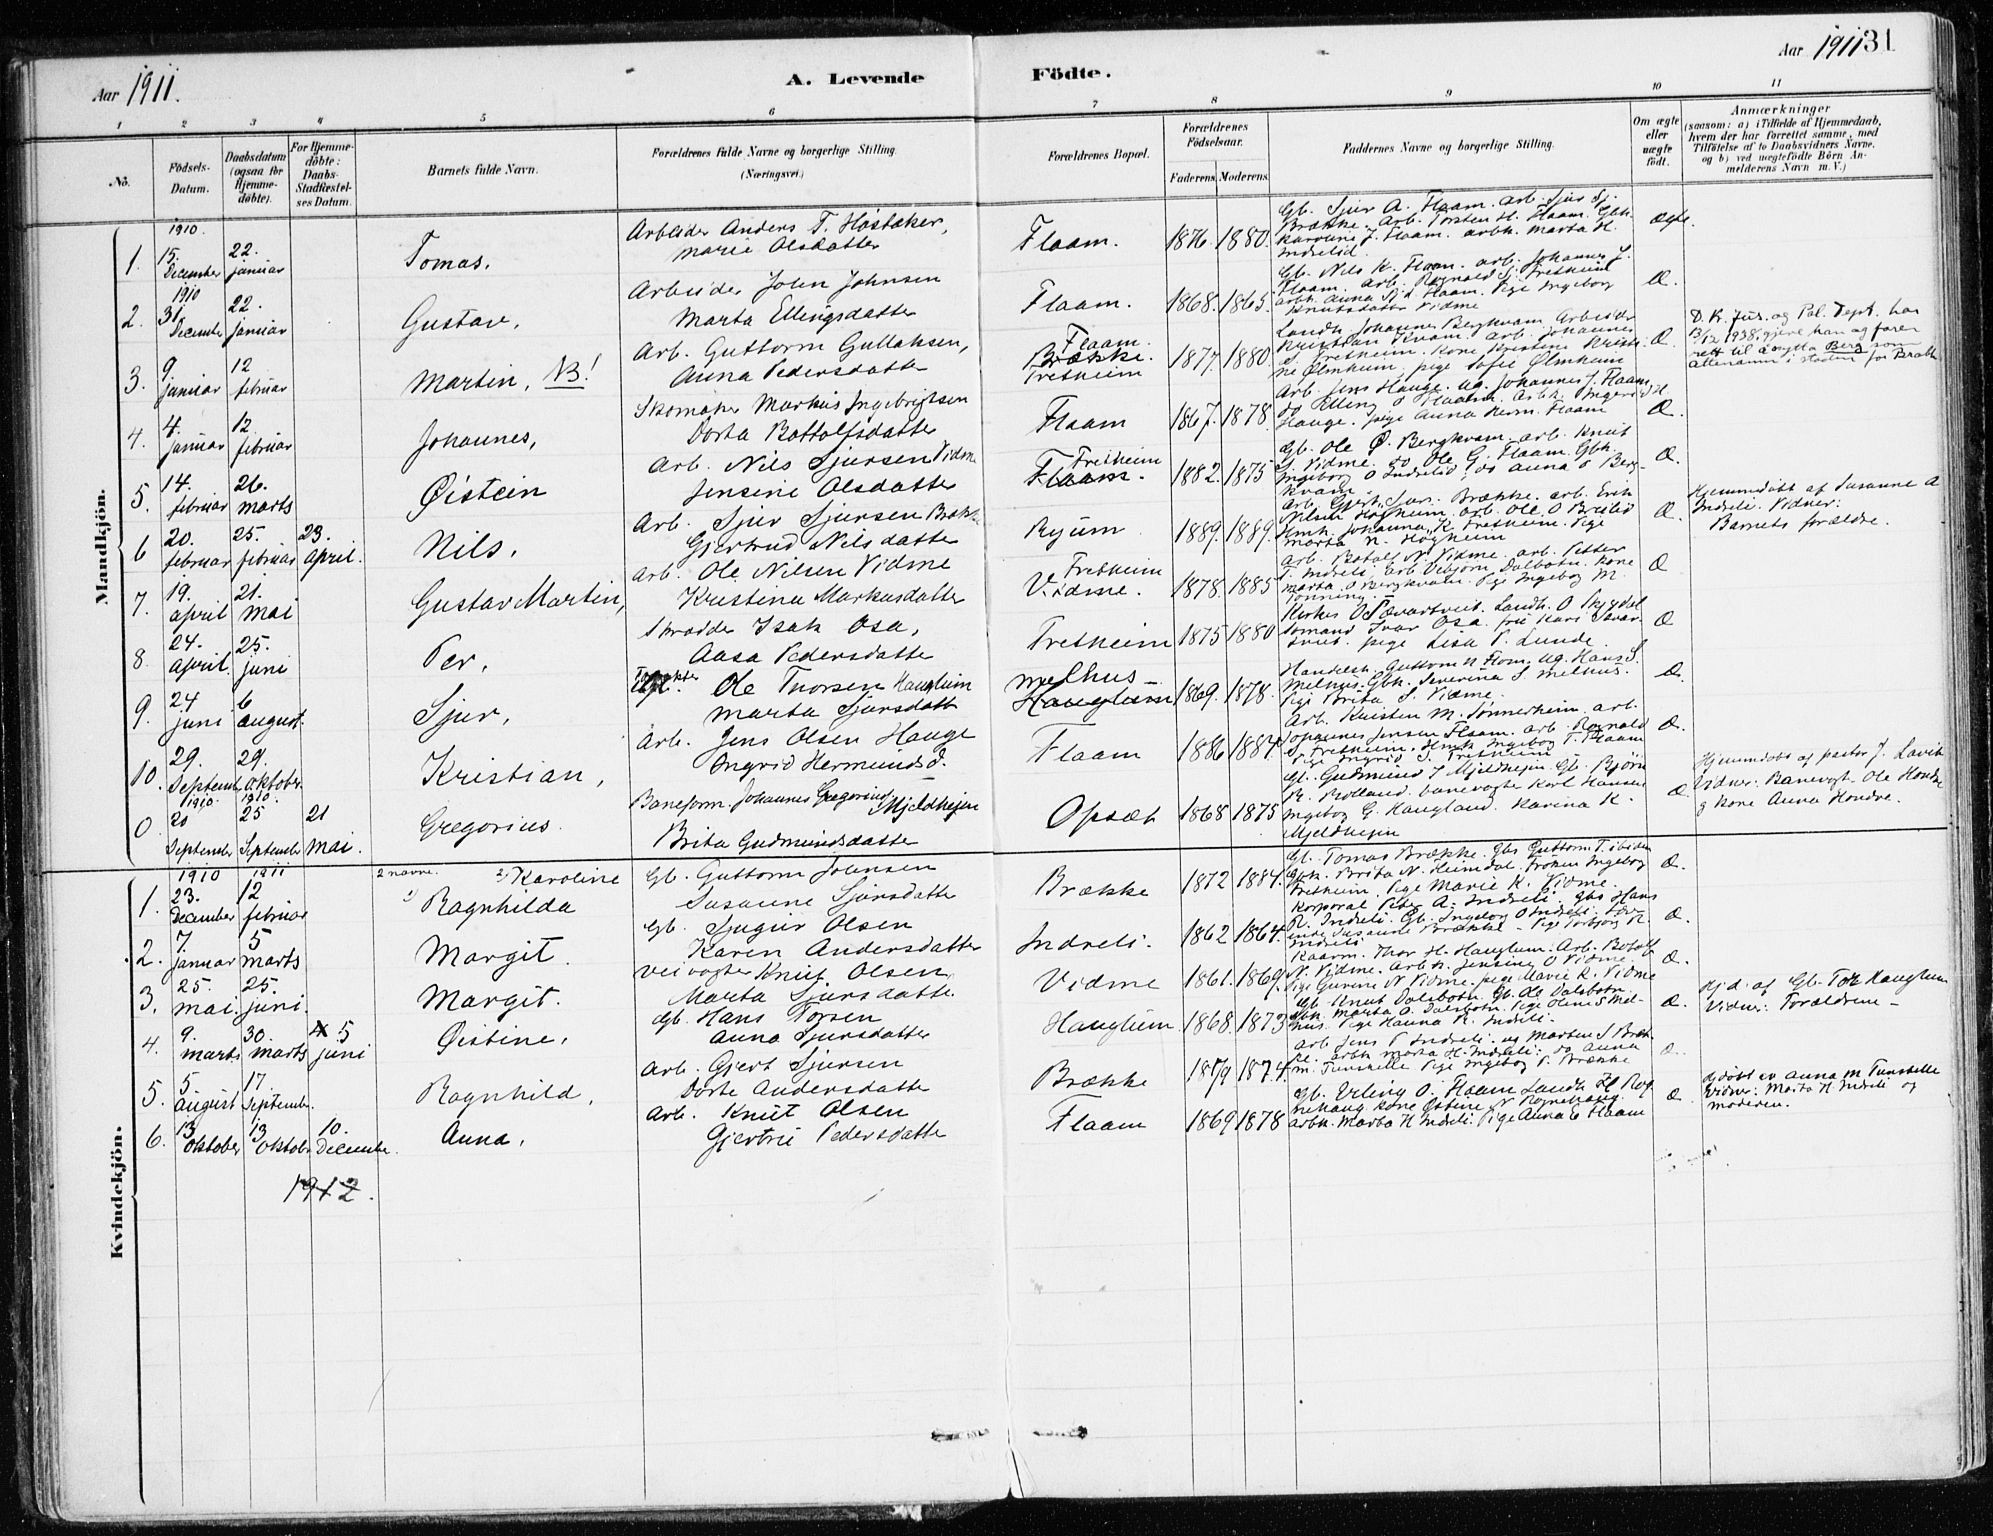 Aar 1911.
A. Levende Födte.
Aar 1911 31
1 2 3 4 5 6 7 8 9 10 11
No.
Födsels-Datum.
Daabsdatum (ogsaa för Hjemme-döbte).
For Hjemme-döbte: Daabs-Stadfæstel-ses Datum.
Barnets fulde Navn.
Forældrenes fulde Navne og borgerlige Stilling.
(Næringsvei.)
Forældrenes Bopæl.
Forældrenes Födselsaar.
Faderens. Moderens.
Faddernes Navne og borgerlige Stilling.
Om ægte eller uægte født.
Anmærkninger
(saasom: a) i Tilfælde af Hjemmedaab,
hvem der har forrettet samme, med
Tilføielse af to Daabsvidners Navne,
og b) ved uægtefödte Börn An-
melderens Navn m. V.)
Mandkjön.
1. 1910 15. December 22. januar Tomas. Arbeider Anders T. Høstaker, Maria Olsdatter Flaam. 1876. 1880. Gb. Sjur A. Flaam. arb. Sjur Sj.
Brække. arb. Torsten H. Flaam. Gbk.
Karoline J. Flaam. arbk. Marta H.
Indrelid ægte.
2. 1910 31. December 22. januar Gustav. Arbeider John Johnsen Marta Ellingsdatter Flaam. 1868. 1865. Gb. Nils K. Flaam. arb. Johannes J.
Flaam. arb. Ragnald S. Fretheim
arbk. Anna Flaam. Pige Ingeborg
Knutsdatter Vidme Æ.
3. 9. januar 12 februar Martin, NB! Arb. Guttorm Gullaksen, Anna Pedersdatter Flaam. Brække. Fretheim 1877. 1880. Landh. Johannes Bergkvam Arbeider
Kristian Kvam. arb. Johannes
S. Fretheim. Kone Kristine Kristi-
ne Ølmheim, pige Sofie Ølmheim Æ. D. K. Jus. og Pol. Dept. har
13/12 1938 gjeve han og faren
rett til å nytta Berg som
ættenamn i staden for Brække
4. 4. januar 12. februar Johannes, Skomaker Markus Ingebrigtsen Dorta Bottolfsdatter Flaam 1867. 1878. Arb. Jens Hauge. ug. Johannes J. Flaam,
do Elling O Flaam. Arbk. Ingerid H.
Hauge. pige Anna Herm. Flaam Æ.
5. 14. februar 26. marts Øistein Arb. Nils Sjursen Vidme Jensine Olsdatter Fretheim Flaam. 1882. 1875 Gb. Ole Ø. Bergkvam. arb. Knut
S. Vidme. do Ole G. Flaam. Gbk.
Ingeborg O Indrelid, do Anna O Berg-
kvam. Æ.
6 20. februar 25. februar 23. april. Nils. Arb. Sjur Sjursen Brække Gjertrud Nilsdatter Ryum 1889. 1889. Arb. Gjert Sjur. Brække. arb. Erik
Nilsen Høgheim. arb. Ole O Brislid
Hmk. Johanna K. Fretheim. Pige
Marta N. Høgheim Æ. Hjemmdøbt af Susanne A
Indreli. Vidner:
Barnets forældre.
7. 19. april 21. mai Gustav Martin, Arb. Ole Nilsen Vidme Kristina Markusdatter Fretheim Vidme. 1878. 1885 Arb. Botolf N. Vidme. arb. Petter
T. Indreli, arb Vebjørn Dalbotn. Kone
Marta O Bergkvam. Pige Ingebog M.
Tønning. Æ
8. 24. april. 25. juni Per, Skrædder Isak Osa, Aasa Pedersdatter Fretheim 1875 1880 Kirkes. O Svartveit. Landh. O Skjydal
Sømand Ivar Osa. frú Kari Svar-
tveit. pige Lisa P. Lunde Æ
9. 24 juni 6 august. Sjur, Ole Thorsen Hauglum Marta Sjursdatt Melhus Hauglum 1869. 1878. Handelsb. Guttorm N Flom. ug. Hans S.
Melhus. Gbk. Severina S. Melhus.
Pige Brita S. Vidme. Æ.
10. 29. Septemb. 29. Oktober. Kristian, Arb. Jens Olsen Hauge Ingrid Hermundsd. Flaam 1886 1887. Arb. Kristen M. Tønnerheim. arb.
Johannes Jensen Flaam. arb. Ragnald
S. Fretheim. Hmk Ingeborg T. Flaam
Pige Ingrid S. Fretheim Æ.
0. 1910 20 September 1910. 25 September 21 mai. Gregorius. Baneform. Johannes Gregorius. Mjeldheim Brita Gudmundsdatter Opsæt 1868 1875 Gb. Gudmund J Mjeldheim. Gb. Bjørn
R. Rolland. banevogter Karl Hansen
Ingebog G. Haugland. Karina K.
Mjeldheim Æ. Hjemmdøbt af pastor J. Lavik
Vidner: Banevogt. Ole Hondre
og kone Anna Hondre.
Kvindekjön.
1. 1910 23. December 1911 12 februar 2 navne. 2) Karoline 1) Ragnhilda Gb. Guttorm Johnsen Susanne Sjursdatter Brække 1872 1884. Gb. Tomas Brække. Gbs Guttorm T.
Gbk. Brita N. Heimdal. Frøken Ingebog
Fretheim. Pige Marie K. Vidme. Æ.
2. 7. januar 5 marts Margit. Gb. Sjugur Olsen Karen Andersdatter Indreli. 1862 1864. Korporal Peter A. Indreli. Gbs Hans
R. Indreli. Gb. Ingebog O Indreli.
Susanne Brække. Pige Torbjør R.
Indreli Æ.
3. 25. mai. 25. juni. Margit. Veivogter Knut Olsen Marta Sjursdatter. Vidme 1861. 1869. Kaarm. Thor H. Hauglum. Arb. Botolf
N. Vidme. Arbk. Jensine O Vidme.
Pige Gurine N Vidme. pige Marie K. Vidme Æ.
4. 9. marts 30. marts 5 juni Øistine, Gb. Hans Torsen Anna Sjursdatter Hauglum. 1868. 1873 Gb. Knut Dalsbotn. Gb. Ole Dalsbotn.
Gbk. Marta O. Dalsbotn. Pige Oline S Mel-
hus. Pige Hanna R. Indreli. Æ. Hjd. af Gb. Tor Hauglum
Vidner: Forældrene –
5. 5 august 17. Septembe. Ragnhild, Arb. Gjert Sjursen Dorte Andersdatter Brække 1879 1874. Arb Jens P Indreli. ug Marten S Bræk-
ke. arbk Marta H. Indreli: do Anna
M. Tunshelle Pige Ingebog T. Brække Æ.
6. 13 Oktober 13 Oktob. 10. Decembe. Anna, Arb. Knut Olsen Gjertrú Pedersdatter Flaam 1869 1878 Gb. Erling O. Flaam. Landh. H. Rog-
nehaug kone Østine N Rognehaug.
arbk. Marta H Indreli. Pige Anna E Flaam Æ. Hjdøbt av Anna M Tunshelle
Vidner: Marta H Indreli og
moderen.
1912.